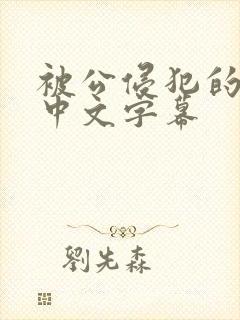 被公侵犯的
中文字幕
劉先森